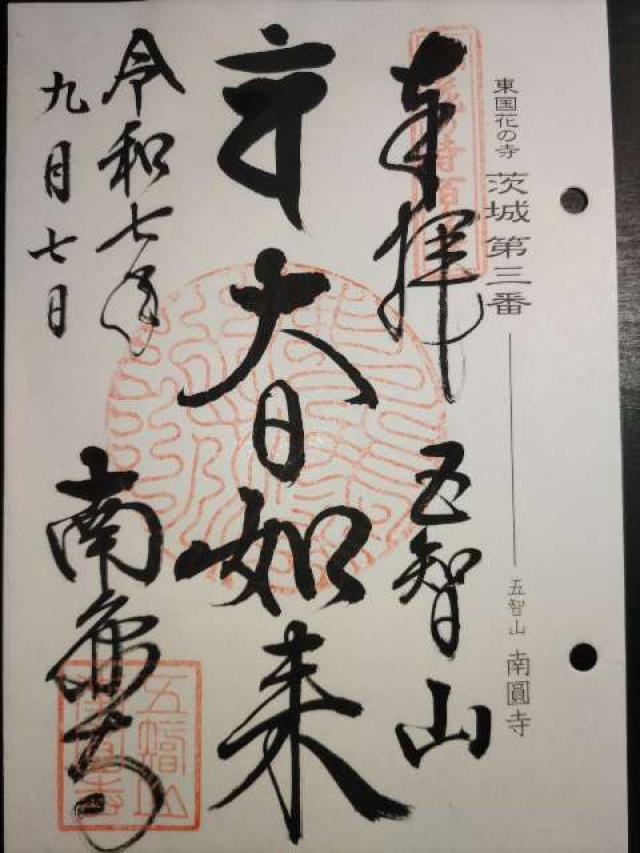 東国花の寺 茨城 第三番
五智山 南圓寺
奉拝 五智山
大日如来
南圓寺
令和七年
九月七日